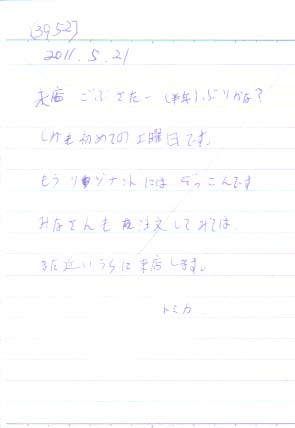 [3952]
2011.5.21
来店 ごぶさたー (半年)ぶりかな?
しかも初めての土曜日です。
もうリゾナントにはぞっこんです
みなさんも注文してみては
また近いうちに来店します。
トミカ